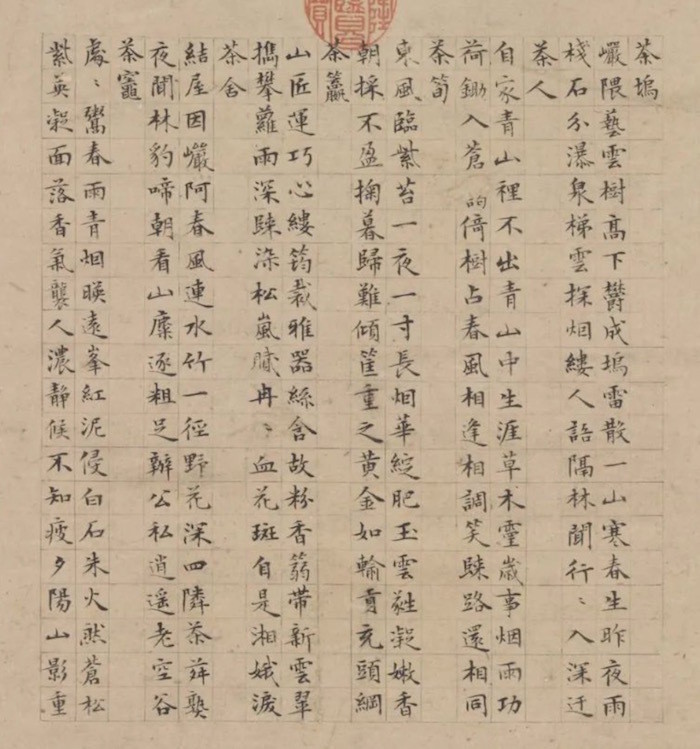 茶塢
巖隈藝雲樹高下鬱成塢雷散一山寒春生昨夜雨
棧石分瀑泉梯雲探烟縷人語隔林聞行〻入深迂
茶人
自家青山裡不出青山中生涯草木靈歲事烟雨功
荷鋤入蒼的倚樹占春風相逢相調笑歸路還相同
茶筍
東風臨紫苔一夜一寸長烟華綻肥玉雲蕤凝嫩香
朝採不盈掬暮歸難傾筐重之黃金如輸貢充頭綱
茶籯
山匠運巧心縷筠裁雅器絲含故粉香篛帶新雲翠
攜攀蘿雨深歸染松嵐膩冉〻血花斑自是湘娥淚
茶舍
結屋因巖阿春風連水竹一徑野花深四隣茶荈熟
夜聞林豹啼朝看山麋逐粗足辦公私逍遙老空谷
茶竈
處〻鬻春雨青烟暎遠峯紅泥侵白石朱火然蒼松
紫英凝面落香氣襲人濃靜候不知疲夕陽山影重